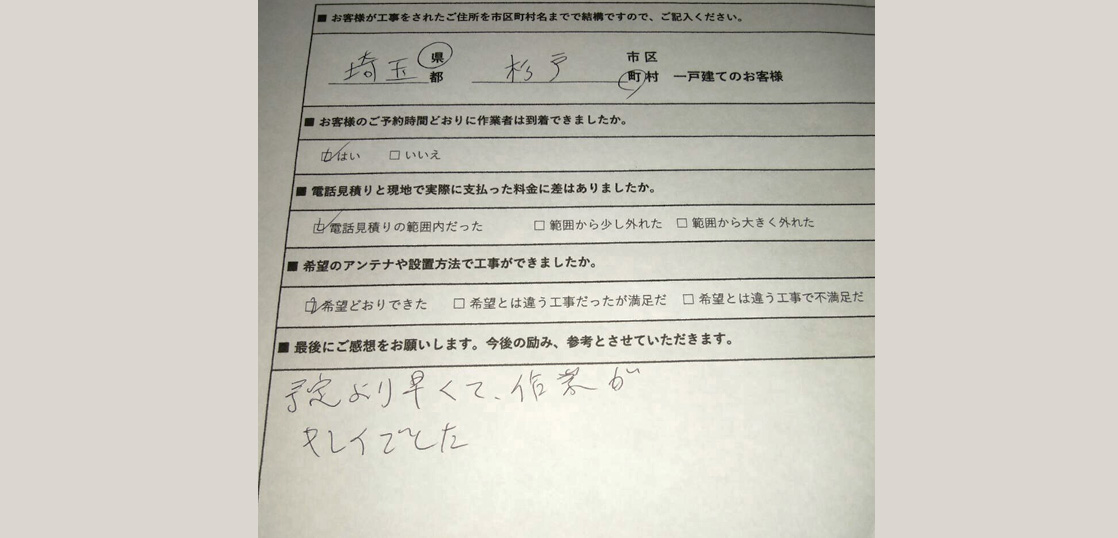 ■ お客様が工事をされたご住所を市区町村名までで結構ですので、ご記入ください。
埼玉 県 杉戸 市 区
都 町 村 一戸建てのお客様
■ お客様のご予約時間どおりに作業者は到着できましたか。
☑はい □いいえ
■ 電話見積りと現地で実際に支払った料金に差はありましたか。
☑電話見積りの範囲内だった □範囲から少し外れた □範囲から大きく外れた
■ 希望のアンテナや設置方法で工事ができましたか。
☑希望どおりできた □希望とは違う工事だったが満足だ □希望とは違う工事で不満足だ
■ 最後にご感想をお願いします。今後の励み、参考とさせていただきます。
予定より早くて、作業が
キレイでした